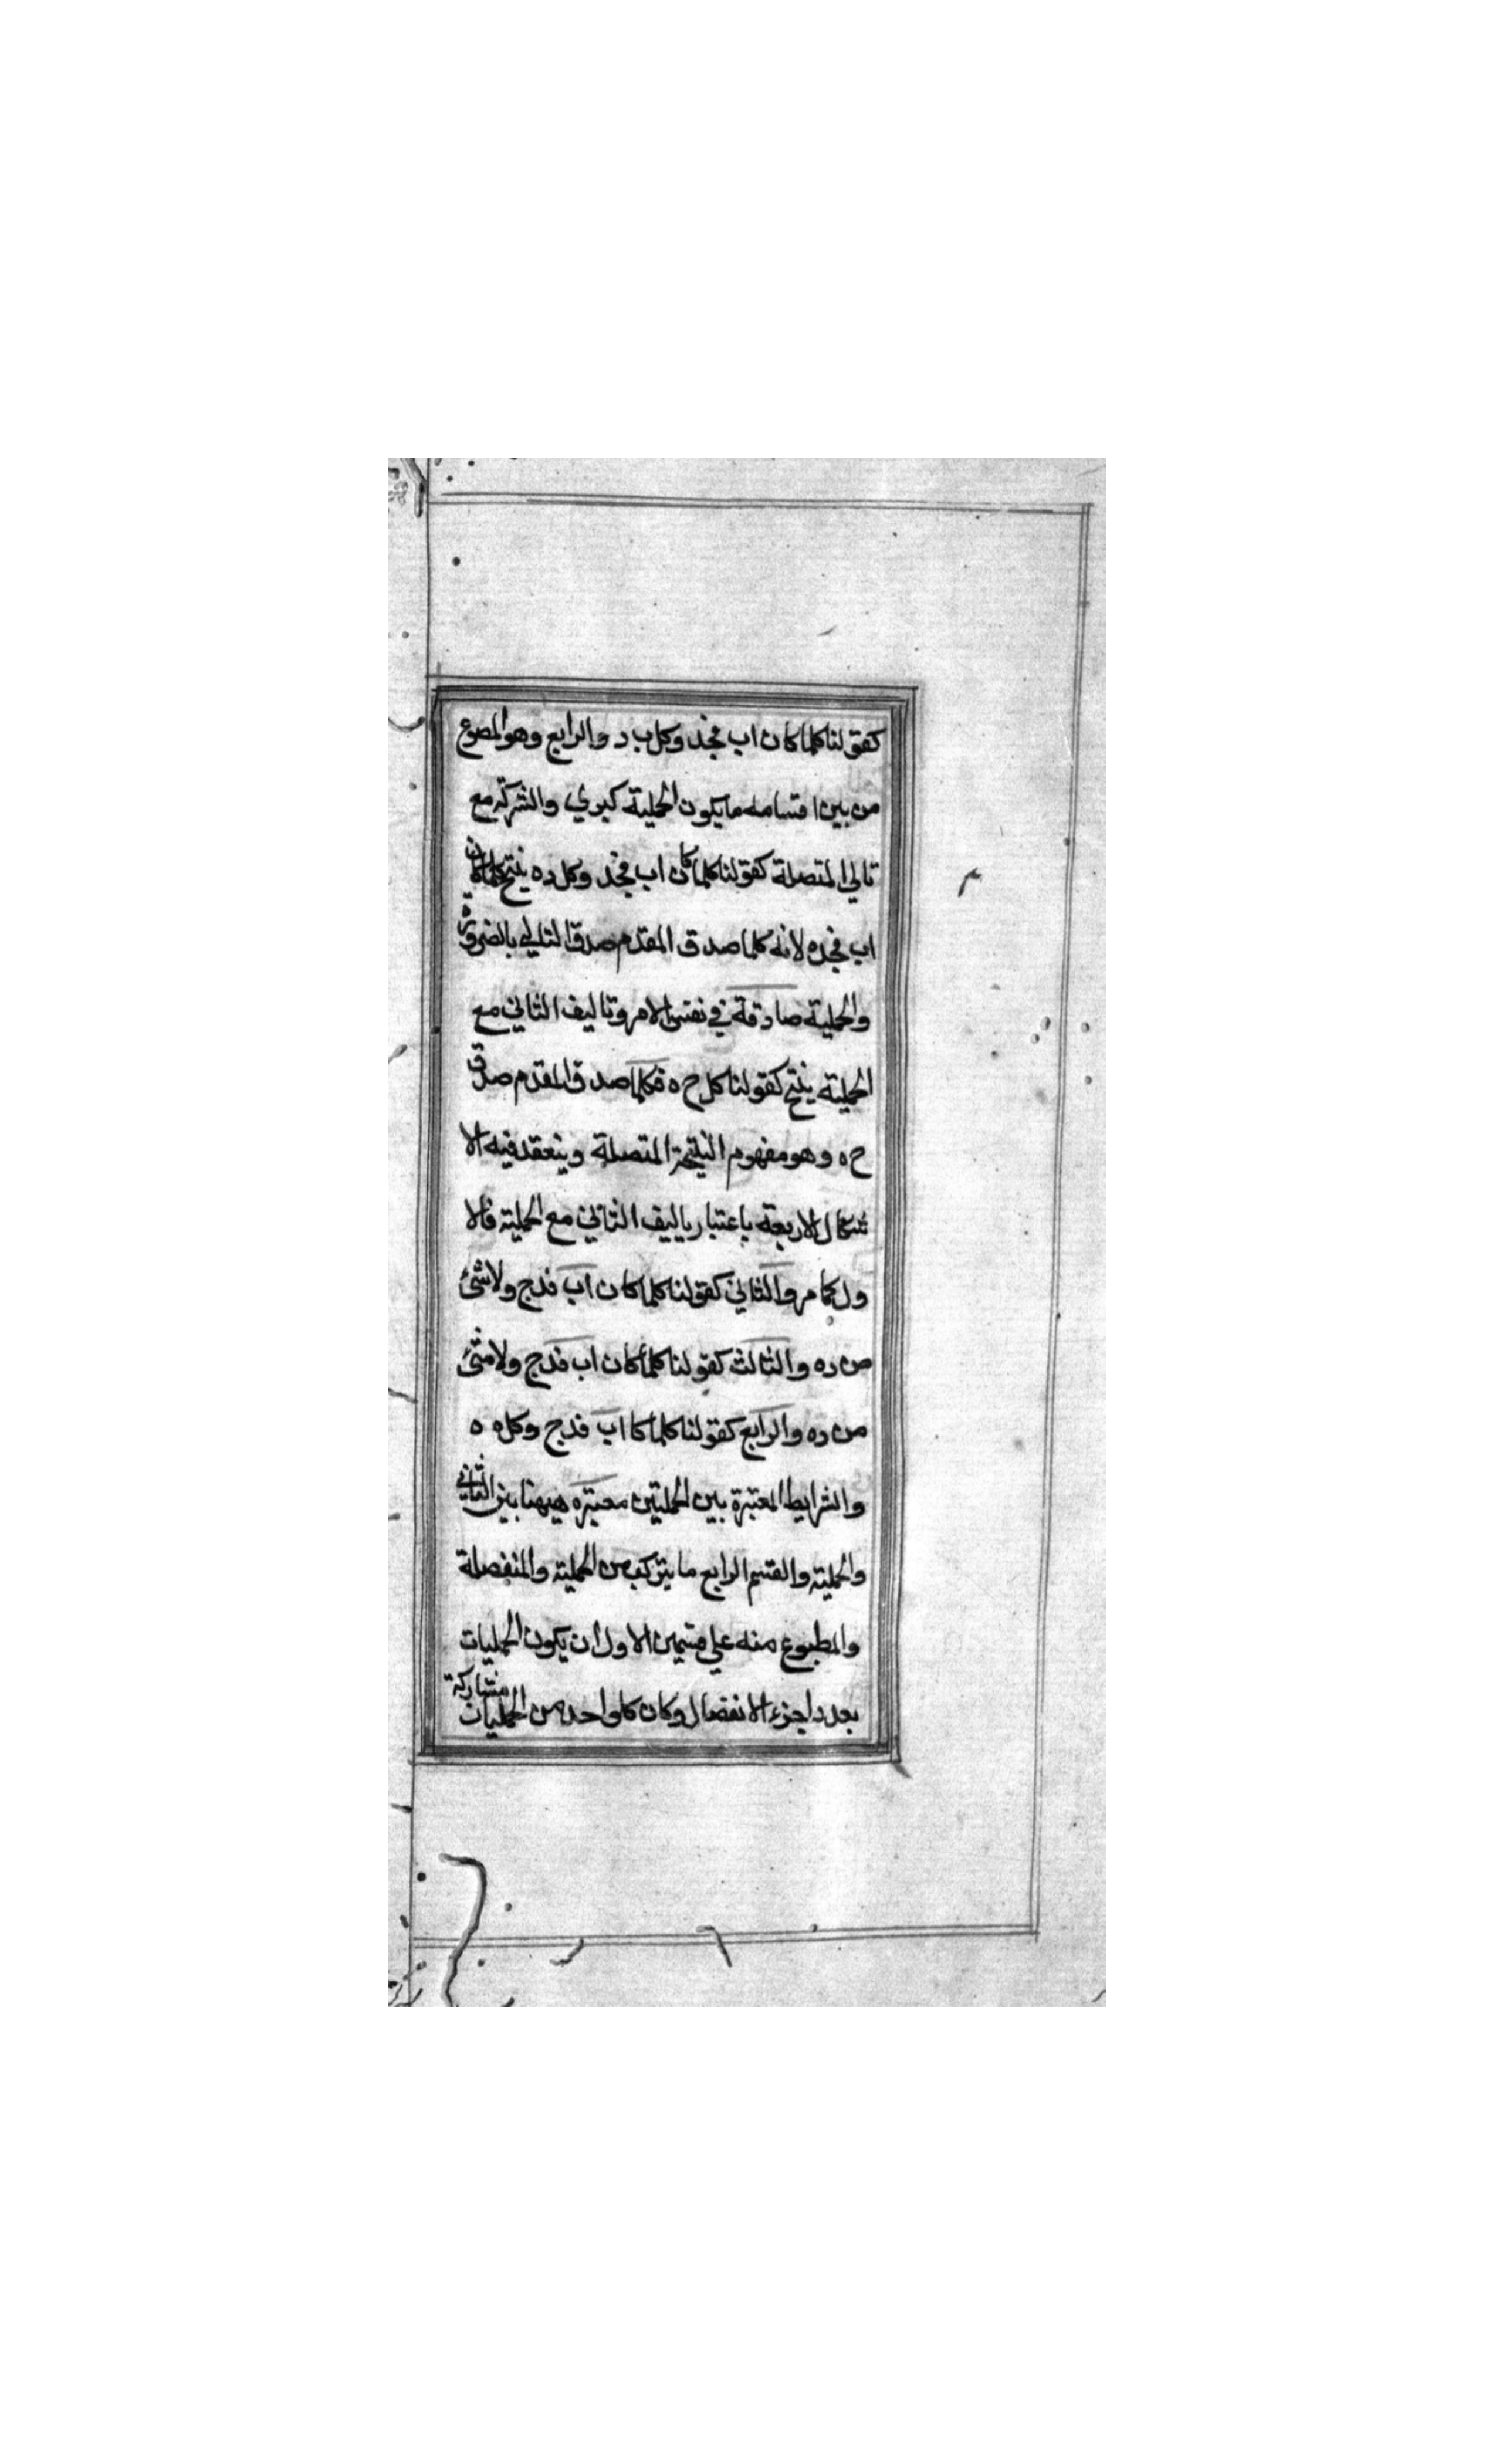 كقولنا كلما كان اب فجد وكل ب د والرابع وهو المصوع
من بين اقسامه ما يكون الحملية كبري والشركة مع
تالي المتصلة كقولنا كلما كان اب فجد وكل ده ينتج كلما كان
اب فجده لانه كلما صدق المقدم صدق التالي بالضرورة
والحملية صادقة في نفس الامر وتاليف التاني مع
الحملية ينتج كقولنا كل ح ه فكلما صدق المقدم صدق
ح ه وهو مفهوم النتيجة المتصلة وينعقد فيه الا
شكال الاربعة باعتبار ياليف التاني مع الحملية فالا
ول كما مر والثاني كقولنا كلما كان اب فدج ولا شئ
من ده والثالث كقولنا كلما كان اب فدج ولا شئ
من ده والرابع كقولنا كلما كا اب فدج وكل ه ه
والشرايط المعتبرة بين الحمليتين معتبره ههنا بين التاني
والحملية والقسم الرابع ما يتركب من الحملية والمنفصلة
والمطبوع منه علي قسمين الاول ان يكون الحمليات
بعدد اجزء الانفصال وكان كل واحد من الحمليات مشاركة
م